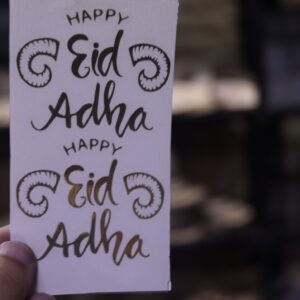 HAPPY
Eid
Adha
HAPPY
Eid
Adha